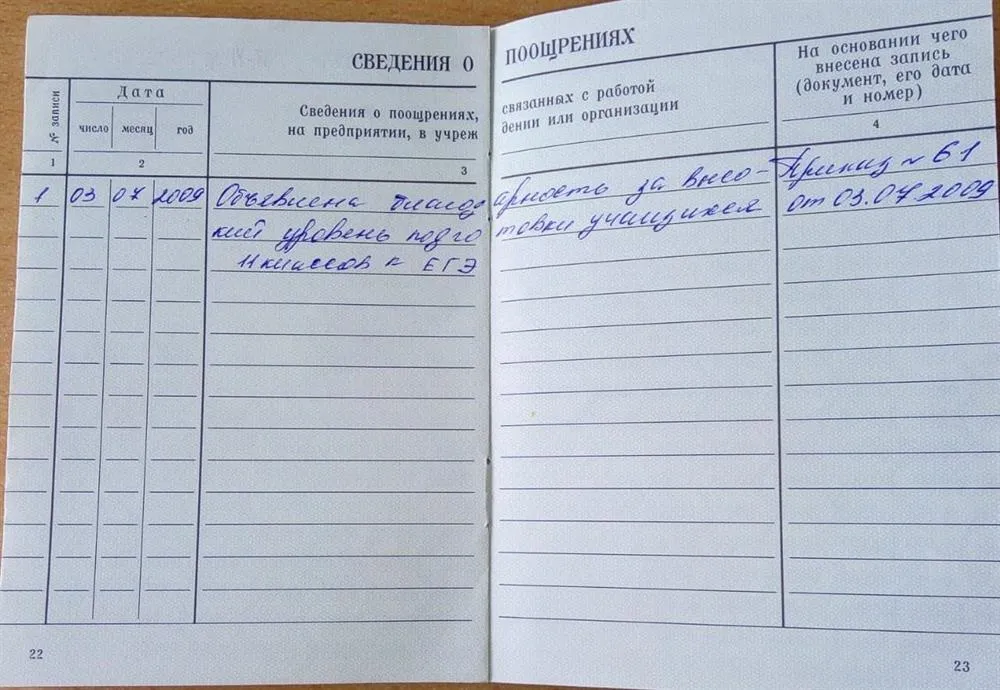 СВЕДЕНИЯ О ПООЩРЕНИЯХ
№ записи
Дата
число месяц год
Сведения о поощрениях, связанных с работой
на предприятии, в учреждении или организации
На основании чего
внесена запись
(документ, его дата
и номер)
1 2 3 4
1 03 07 2009 Объявлена благодарность за высо- Приказ № 61
кий уровень подготовки учащихся от 03.07.2009
11 классов к ЕГЭ
22
23